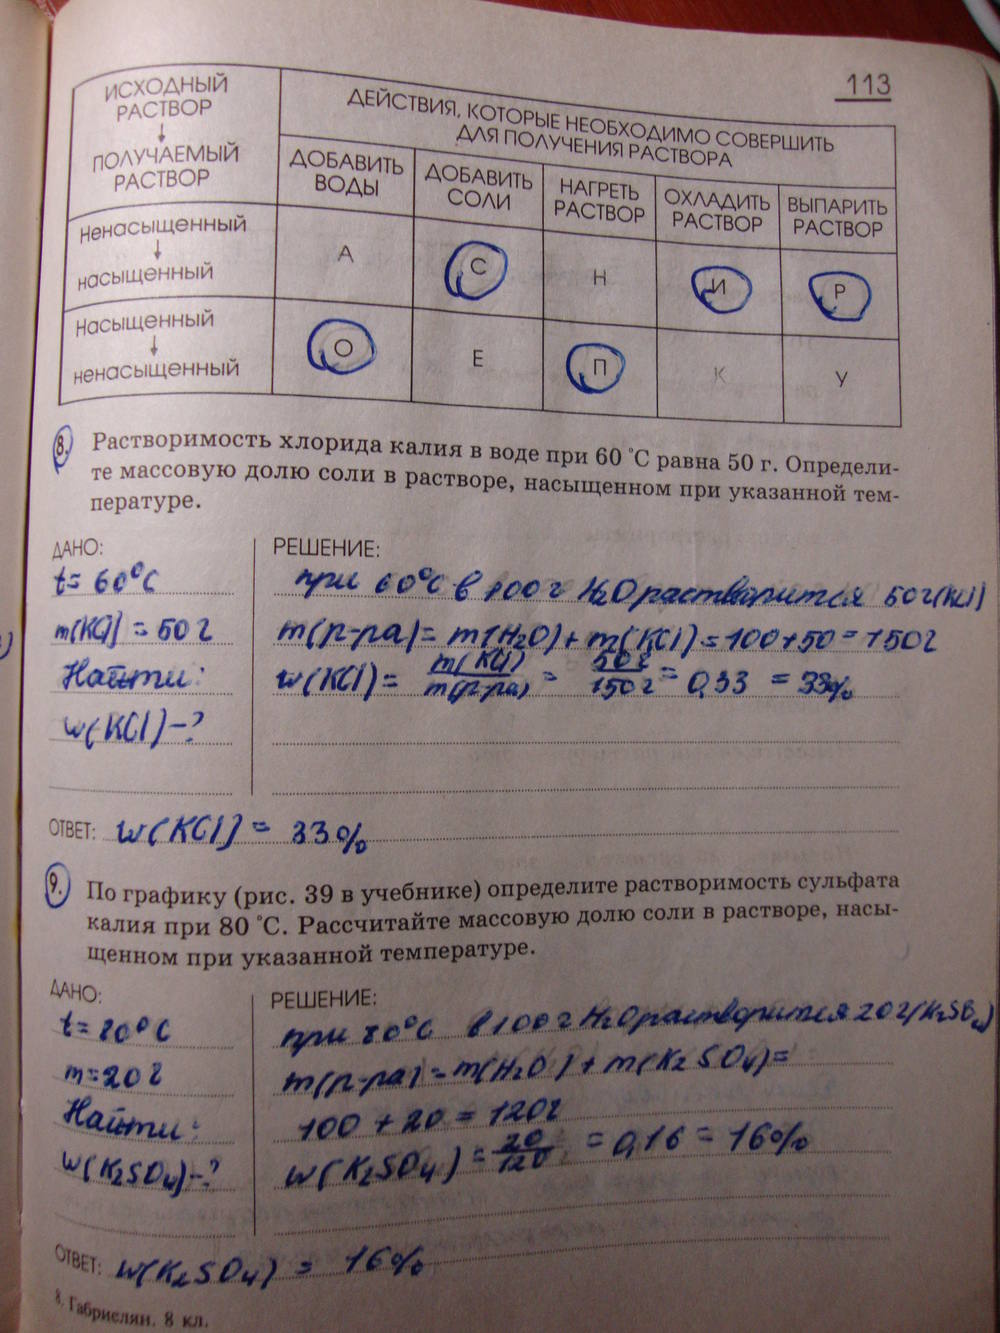 113
ИСХОДНЫЙ
РАСТВОР
↓
ПОЛУЧАЕМЫЙ
РАСТВОР
ДЕЙСТВИЯ, КОТОРЫЕ НЕОБХОДИМО СОВЕРШИТЬ
ДЛЯ ПОЛУЧЕНИЯ РАСТВОРА
ДОБАВИТЬ
ВОДЫ
ДОБАВИТЬ
СОЛИ
НАГРЕТЬ
РАСТВОР
ОХЛАДИТЬ
РАСТВОР
ВЫПАРИТЬ
РАСТВОР
Ненасыщенный
↓
насыщенный
А С Н И Р
Насыщенный
↓
ненасыщенный
О Е П К У
8. Растворимость хлорида калия в воде при 60 °С равна 50 г. Определи-
те массовую долю соли в растворе, насыщенном при указанной тем-
пературе.
ДАНО:
t = 60°C
m(KCl) = 50 г
Найти:
w(KCl) - ?
РЕШЕНИЕ:
при 60°C в 100 г H₂O растворится 50 г (KCl)
m(р-ра) = m(H₂O) + m(KCl) = 100 + 50 = 150 г
w(KCl) = m(KCl)/m(р-ра) = 50 г/150 г = 0,33 = 33%
ОТВЕТ: w(KCl) = 33%
9. По графику (рис. 39 в учебнике) определите растворимость сульфата
калия при 80 °С. Рассчитайте массовую долю соли в растворе, насы-
щенном при указанной температуре.
ДАНО:
t = 80°C
m = 20 г
Найти:
w(K₂SO₄) - ?
РЕШЕНИЕ:
при 80°C в 100 г H₂O растворится 20 г (K₂SO₄)
m(р-ра) = m(H₂O) + m(K₂SO₄) =
100 + 20 = 120 г
w(K₂SO₄) = 20/120 = 0,16 = 16%
ОТВЕТ: w(K₂SO₄) = 16%
8. Габриелян. 8 кл.